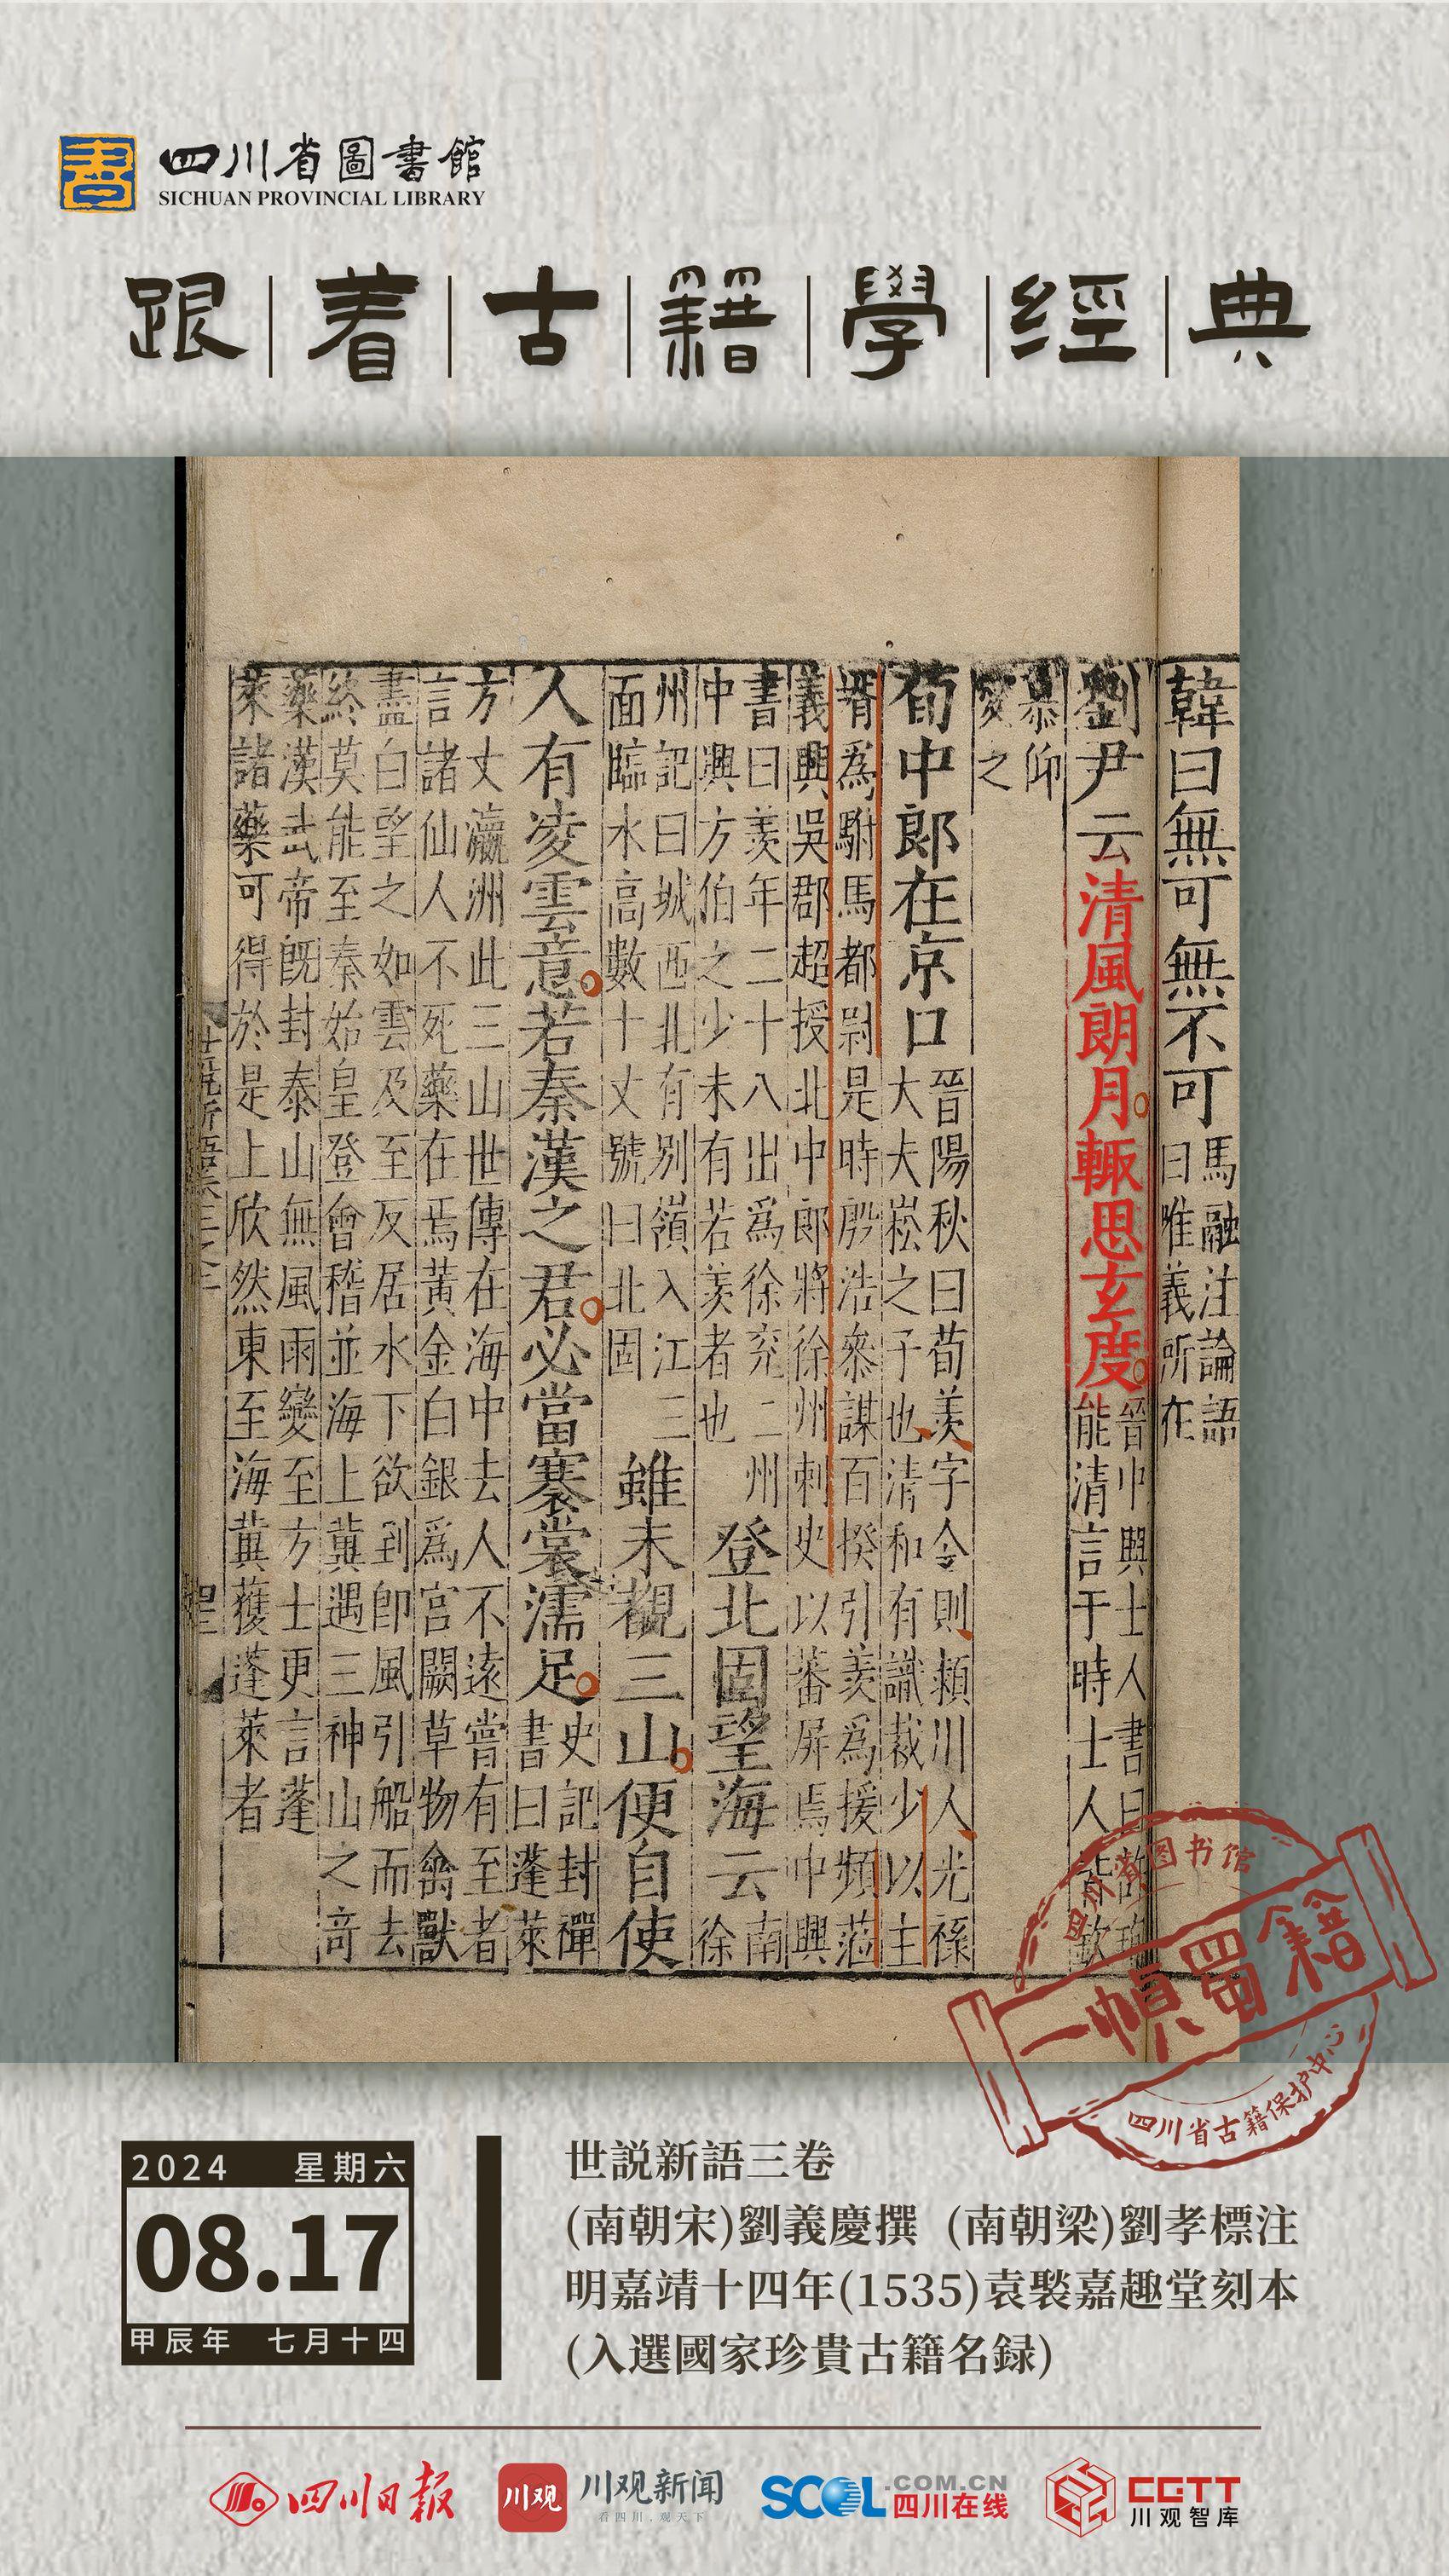 四川省圖書館
SICHUAN PROVINCIAL LIBRARY
跟着古籍學經典
韓曰無可無不可
馬融注論語
曰唯義所在
劉尹云清風朗月輒思玄度
晉中興士人書曰
能清言于時士人
慕仰
愛之
荀中郎在京口
晉陽秋曰荀羨字令則潁川人光祿
大夫崧之子也清和有識裁少以主
壻爲駙馬都尉是時殷浩叅謀百揆引羨爲援頻蒞
義興吳郡超授北中郎將徐州刺史以蕃屏焉中興
書曰羨年二十八出爲徐兗二州
中興方伯之少未有若羨者也
登北固望海云
南
徐
州記曰城西北有別嶺入江三
面臨水高數十丈號曰北固
雖未覩三山便自使
人有凌雲意若秦漢之君必當褰裳濡足
史記封禪
書曰蓬萊
方丈瀛洲此三山世傳在海中去人不遠嘗有至者
言諸仙人不死藥在焉黃金白銀爲宮闕草物禽獸
盡白望之如雲及至反居水下欲到卽風引船而去
終莫能至秦始皇登會稽並海上冀遇三神山之奇
藥漢武帝旣封泰山無風雨變至方士更言蓬
萊諸藥可得於是上欣然東至海冀獲蓬萊者
四川省图书馆
一幀蜀籍
四川省古籍保护中心
2024 星期六
08.17
甲辰年 七月十四
世説新語三卷
(南朝宋)劉義慶撰 (南朝梁)劉孝標注
明嘉靖十四年(1535)袁褧嘉趣堂刻本
(入選國家珍貴古籍名録)
四川日报
川观
川观新闻
看四川，观天下
SCOL.COM.CN
四川在线
CGTT
川观智库